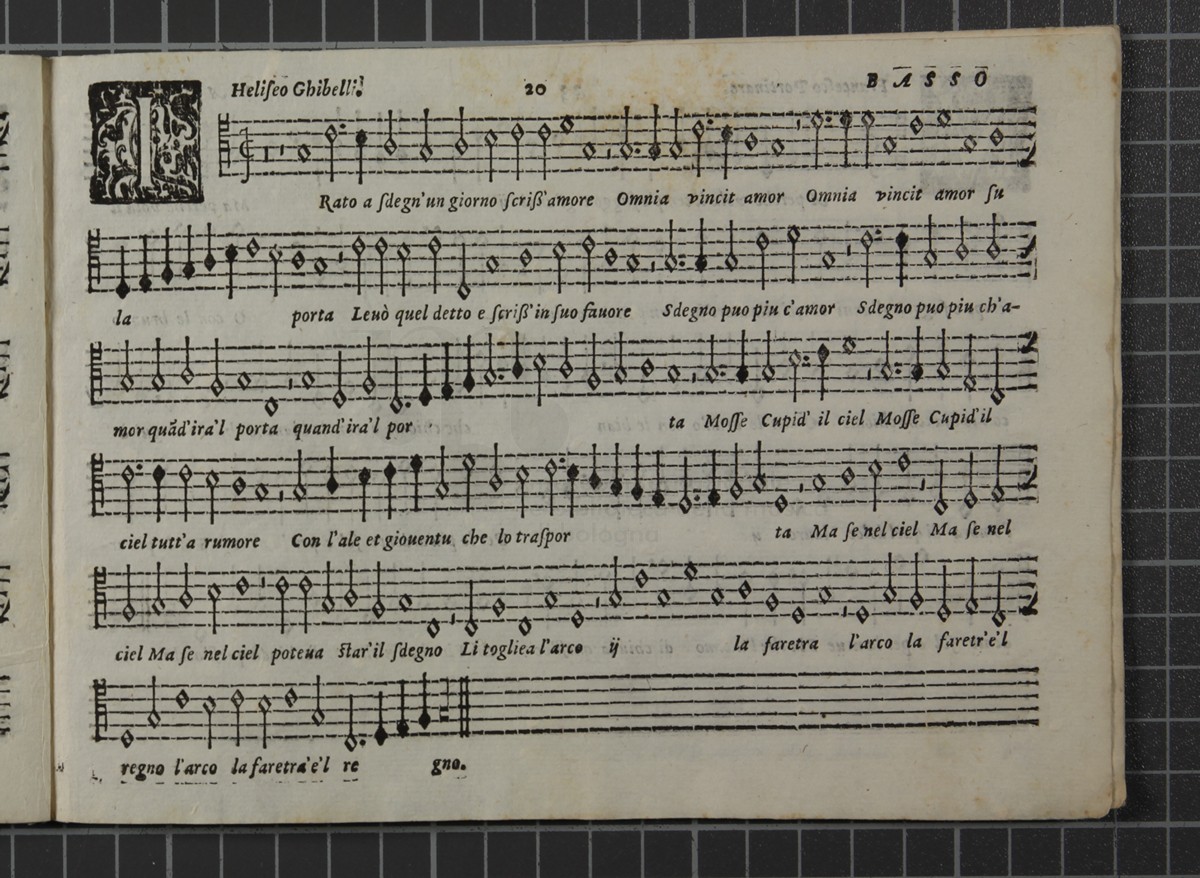 Heliſeo Ghibelli. 20 BASSO
I
Rato a ſdegn'un giorno ſcriſſ'amore Omnia vincit amor Omnia vincit amor ſu
la porta Leuò quel detto e ſcriſſ'in ſuo fauore Sdegno puo piu c'amor Sdegno puo piu ch'a-
mor quãd'ira'l porta quand'ira'l por ta Moſſe Cupid' il ciel Moſſe Cupid'il
ciel tutt'a rumore Con l'ale et giouentu che lo traſpor ta Ma ſe nel ciel Ma ſe nel
ciel Ma ſe nel ciel poteua ſtar'il ſdegno Li togliea l'arco ij la faretra l'arco la faretr'e'l
regno l'arco la faretra'e'l re gno.